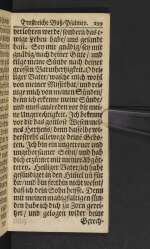 Trostreiche Buß-Psalmen. 229
verlohren werde, sondern das e-
wige Leben habe, uns gesandt
hast. Sey mir gnädig, sey mir
gnädig nach deiner Güte, und
tilge meine Sünde nach deiner
grossen Barmhertzigkeit, Heil-
iger Vater, wasche mich wohl
von meiner Missethat, und rei-
nige mich von meinen Sünden,
denn ich erkenne meine Sünde,
und muß anhören vor dir mei-
ne Ungerechtigkeit. Ich bekenne
vor dir das gottlose Wesen mei-
nes Hertzens, denn heische
allerwege deine Gebote.
Ich bin ein ungetreuer und
ungehorsamer Sohn, und hab
dich erzürnet mit meinen
tern. Heiliger Vater, ich habe
gesündiget in den Himel und für
dir, und bin forthin nicht werth,
daß ich dein Sohn heisse. Denn
mit meinen mañigfaltigen Sün-
den hab ich dich zu Zorn gerei-
tzet, und gelogen wider deine
Gerech-